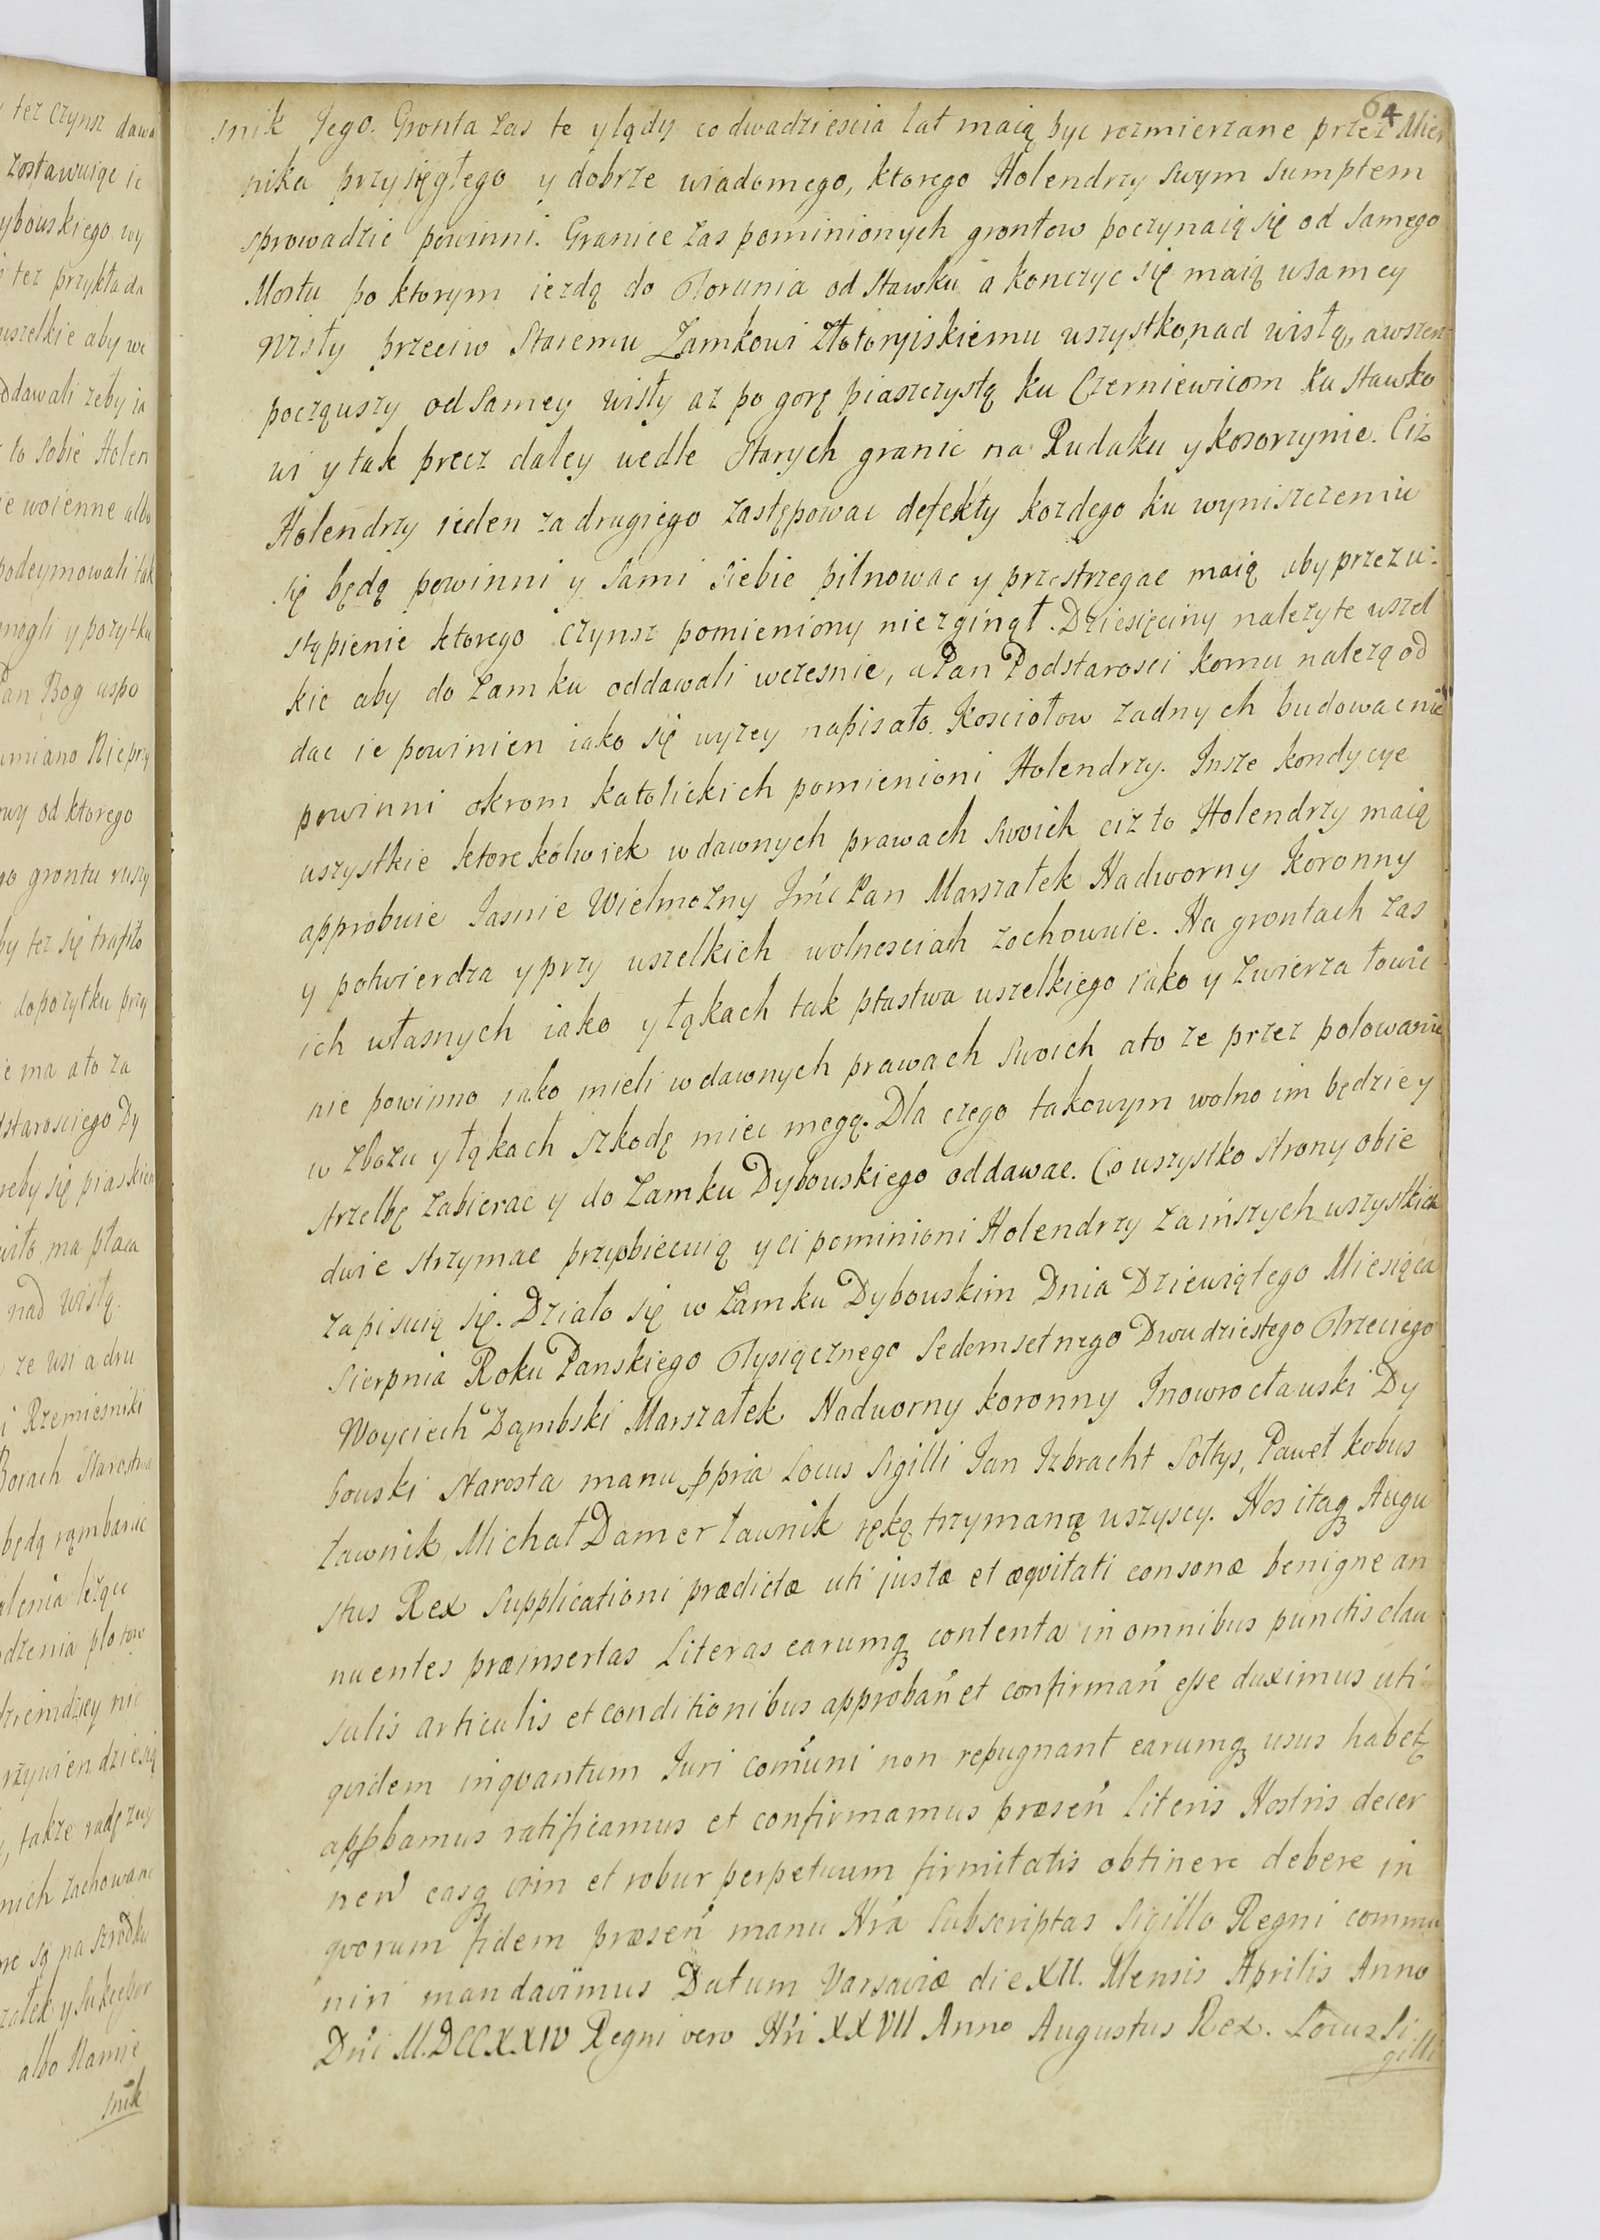 64
snik Jego. Gronta zas te y lądy co dwadziescia lat maią byc rozmierzane przez Mier
nika przysięgłego y dobrze wiadomego, ktorego Holendrzy swym sumptem
sprowadzic powinni. Granice zas pominionych grontow poczynaią się od samego
Mostu po ktorym iezdą do Torunia od Stawku a konczyc się maią u samey
Wisły przeciw Staremu Zamkowi Złotoryiskiemu wszystko nad wisłą, a wszerz
począwszy od samey wisły az po gorę piaszczystą ku Czerniewicom ku Stawko
wi y tak precz daley wedle starych granic na Rudaku y Kosorzynie. Ciz
Holendrzy ieden za drugiego zastępowac defekty kozdego ku wyniszczeniu
się będą powinni y sami siebie pilnowac y przestrzegac maią aby przez u-
stąpienie ktorego czynsz pomieniony nie zginął. Dziesięciny nalezyte wszel
kie aby do Zamku oddawali wczesnie, a Pan Podstarosci komu nalezą od
dac ie powinien iako się wyzey napisało. Kosciołow zadnych budowac nie
powinni okrom katolickich pomienioni Holendrzy. Insze kondycye
wszystkie ktorekolwiek w dawnych prawach swoich ciz to Holendrzy maią
approbuie Jasnie Wielmozny Jmc Pan Marszałek Nadworny Koronny
y potwierdza y przy wszelkich wolnosciach zachowuie. Na grontach zas
ich własnych iako y łąkach tak ptastwa wszelkiego iako y zwierza łowic
nie powinno iako mieli w dawnych prawach swoich a to ze przez polowanie
w zbozu y łąkach szkodę miec mogą. Dla czego takowym wolno im będzie y
strzelbę zabierac y do Zamku Dybowskiego oddawac. Co wszystko strony obie
dwie strzymac przyobiecuią y ci pominioni Holendrzy za inszych wszystkich
zapisuią się. Działo się w Zamku Dybowskim Dnia Dziewiątego Miesiąca
Sierpnia Roku Panskiego Tysiącznego Sedemsetnego Dwudziestego Trzeciego
Woyciech Dąmbski Marszałek Nadworny Koronny Inowrocławski Dy
bowski Starosta manu ppria Locus Sigilli Jan Izbracht Sołtys, Paweł Kobus
ławnik, Michał Damer ławnik ręką trzymaną wszyscy. Nos itaq Augu
stus Rex Supplicationi prædictæ uti justæ et æqvitati consonæ benigne an
nuentes præinsertas Literas earumq contenta in omnibus punctis clau
sulis articulis et conditionibus approbañ et confirmañ esse duximus uti
qvidem inqvantum Juri comuni non repugnant earumq usus habet
appbamus ratificamus et confirmamus præseñ Literis Nostris decer
neñ easq vim et robur perpetuum firmitatis obtinere debere in
qvorum fidem præseñ manu Nra Subscriptas Sigillo Regni commu
niri mandavimus Datum Varsaviæ die XII. Mensis Aprilis Anno
Dni M.DCCXXIV Regni vero Nri XXVII Anno Augustus Rex. Locus Si
gilli